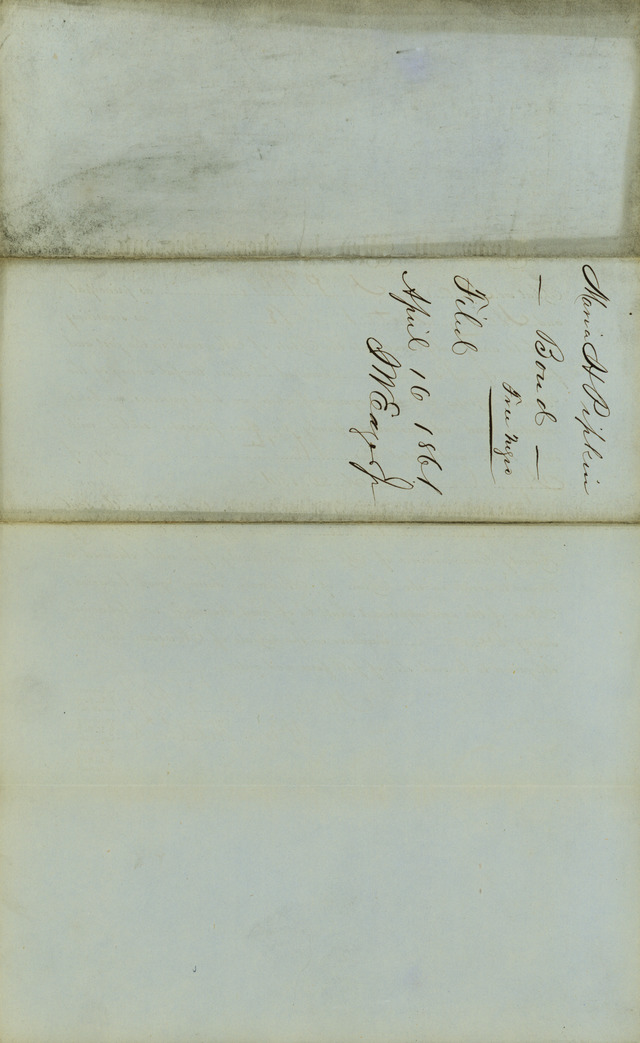 Maria H Pipkin
— Bond —
Free Negro
Filed
April 16 1861